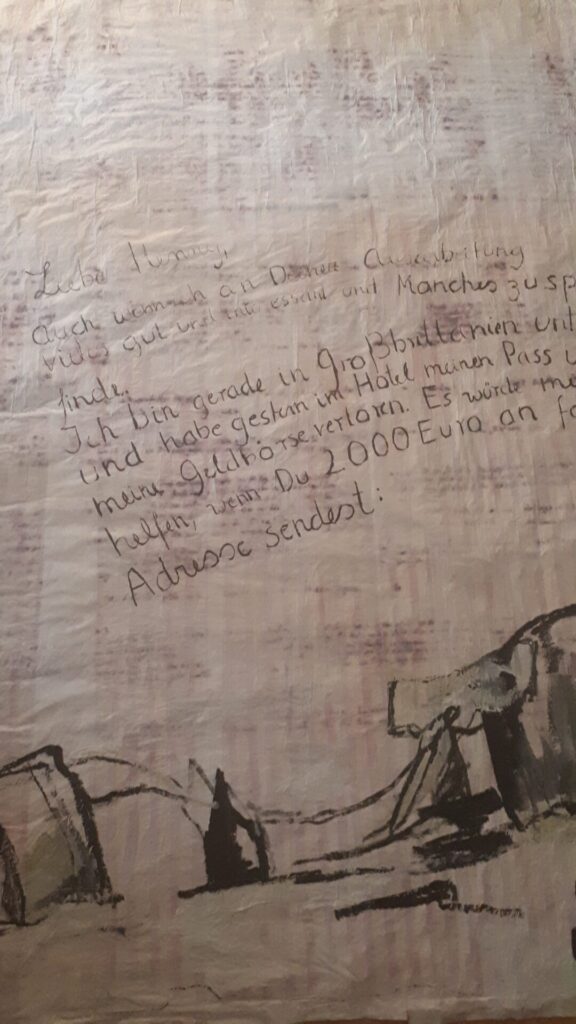 Liebe
auch wenn ich an Deiner Ausarbeitung
vieles gut und interessant und Manches zu sp
finde.
Ich bin gerade in Großbrittanien unt
und habe gestern im Hotel meinen Pass u
meine Geldbörse verloren. Es würde mi
helfen, wenn Du 2000 Euro an fo
Adresse sendest: